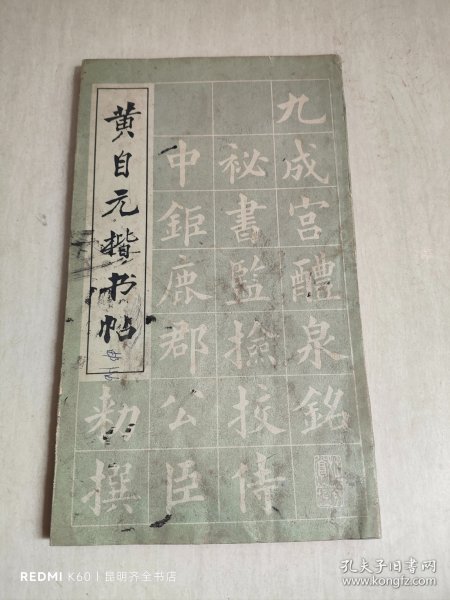 黄自元楷书帖
九成宮醴泉銘
祕書監撿挍侍
中鉅鹿郡公臣
勅撰
REDMI K60 | 昆明齐全书店
孔夫子旧书网
www.kongfz.com